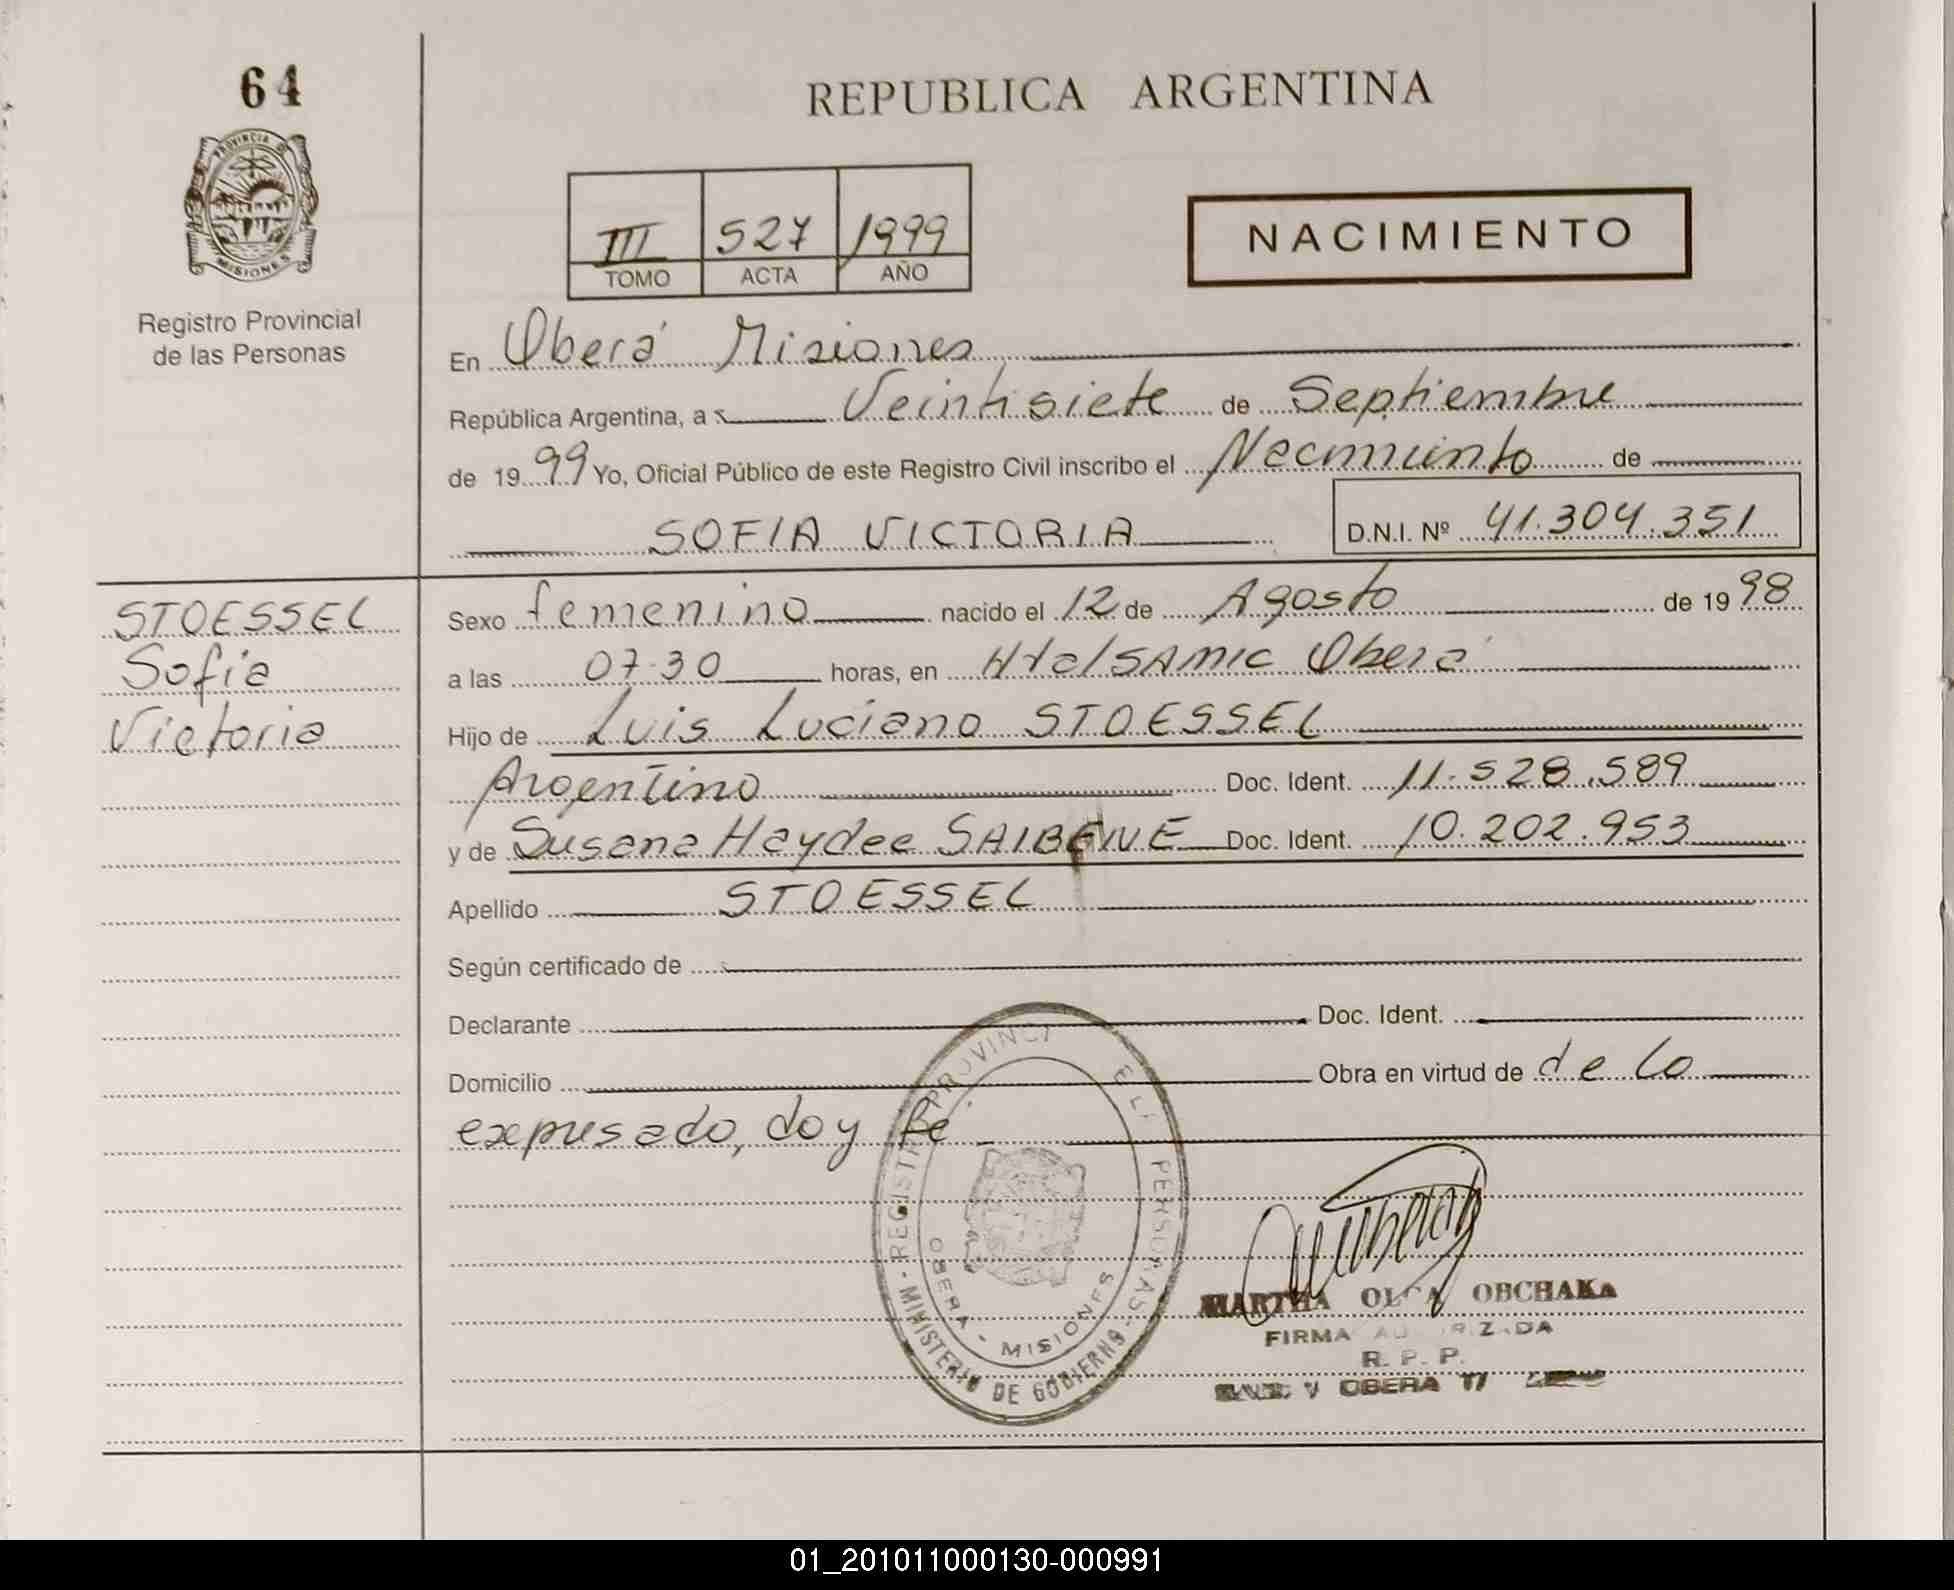 64
REPUBLICA ARGENTINA
PROVINCIA DE
MISIONES
Registro Provincial
de las Personas
III 527 1999
TOMO ACTA AÑO
NACIMIENTO
En Oberá Misiones
República Argentina, a Veintisiete de Septiembre
de 1999 Yo, Oficial Público de este Registro Civil inscribo el Nacimiento de
SOFIA VICTORIA D.N.I. Nº 41.304.351
STOESSEL
Sofia
Victoria
Sexo femenino nacido el 12 de Agosto de 1998
a las 07.30 horas, en Htal SAMIC Oberá
Hijo de Luis Luciano STOESSEL
Argentino Doc. Ident. 11.528.589
y de Susana Haydee SAIBENE Doc. Ident. 10.202.953
Apellido STOESSEL
Según certificado de
Declarante Doc. Ident.
Domicilio Obra en virtud de de lo
expresado, doy fe
REGISTR PROVINCI E L PERSONAS
OBERA - MISIONES
MINISTERIO DE GOBIERNO
MARTHA OLGA OBCHAKA
FIRMA AUTORIZADA
R. P. P.
OBERA
01_201011000130-000991